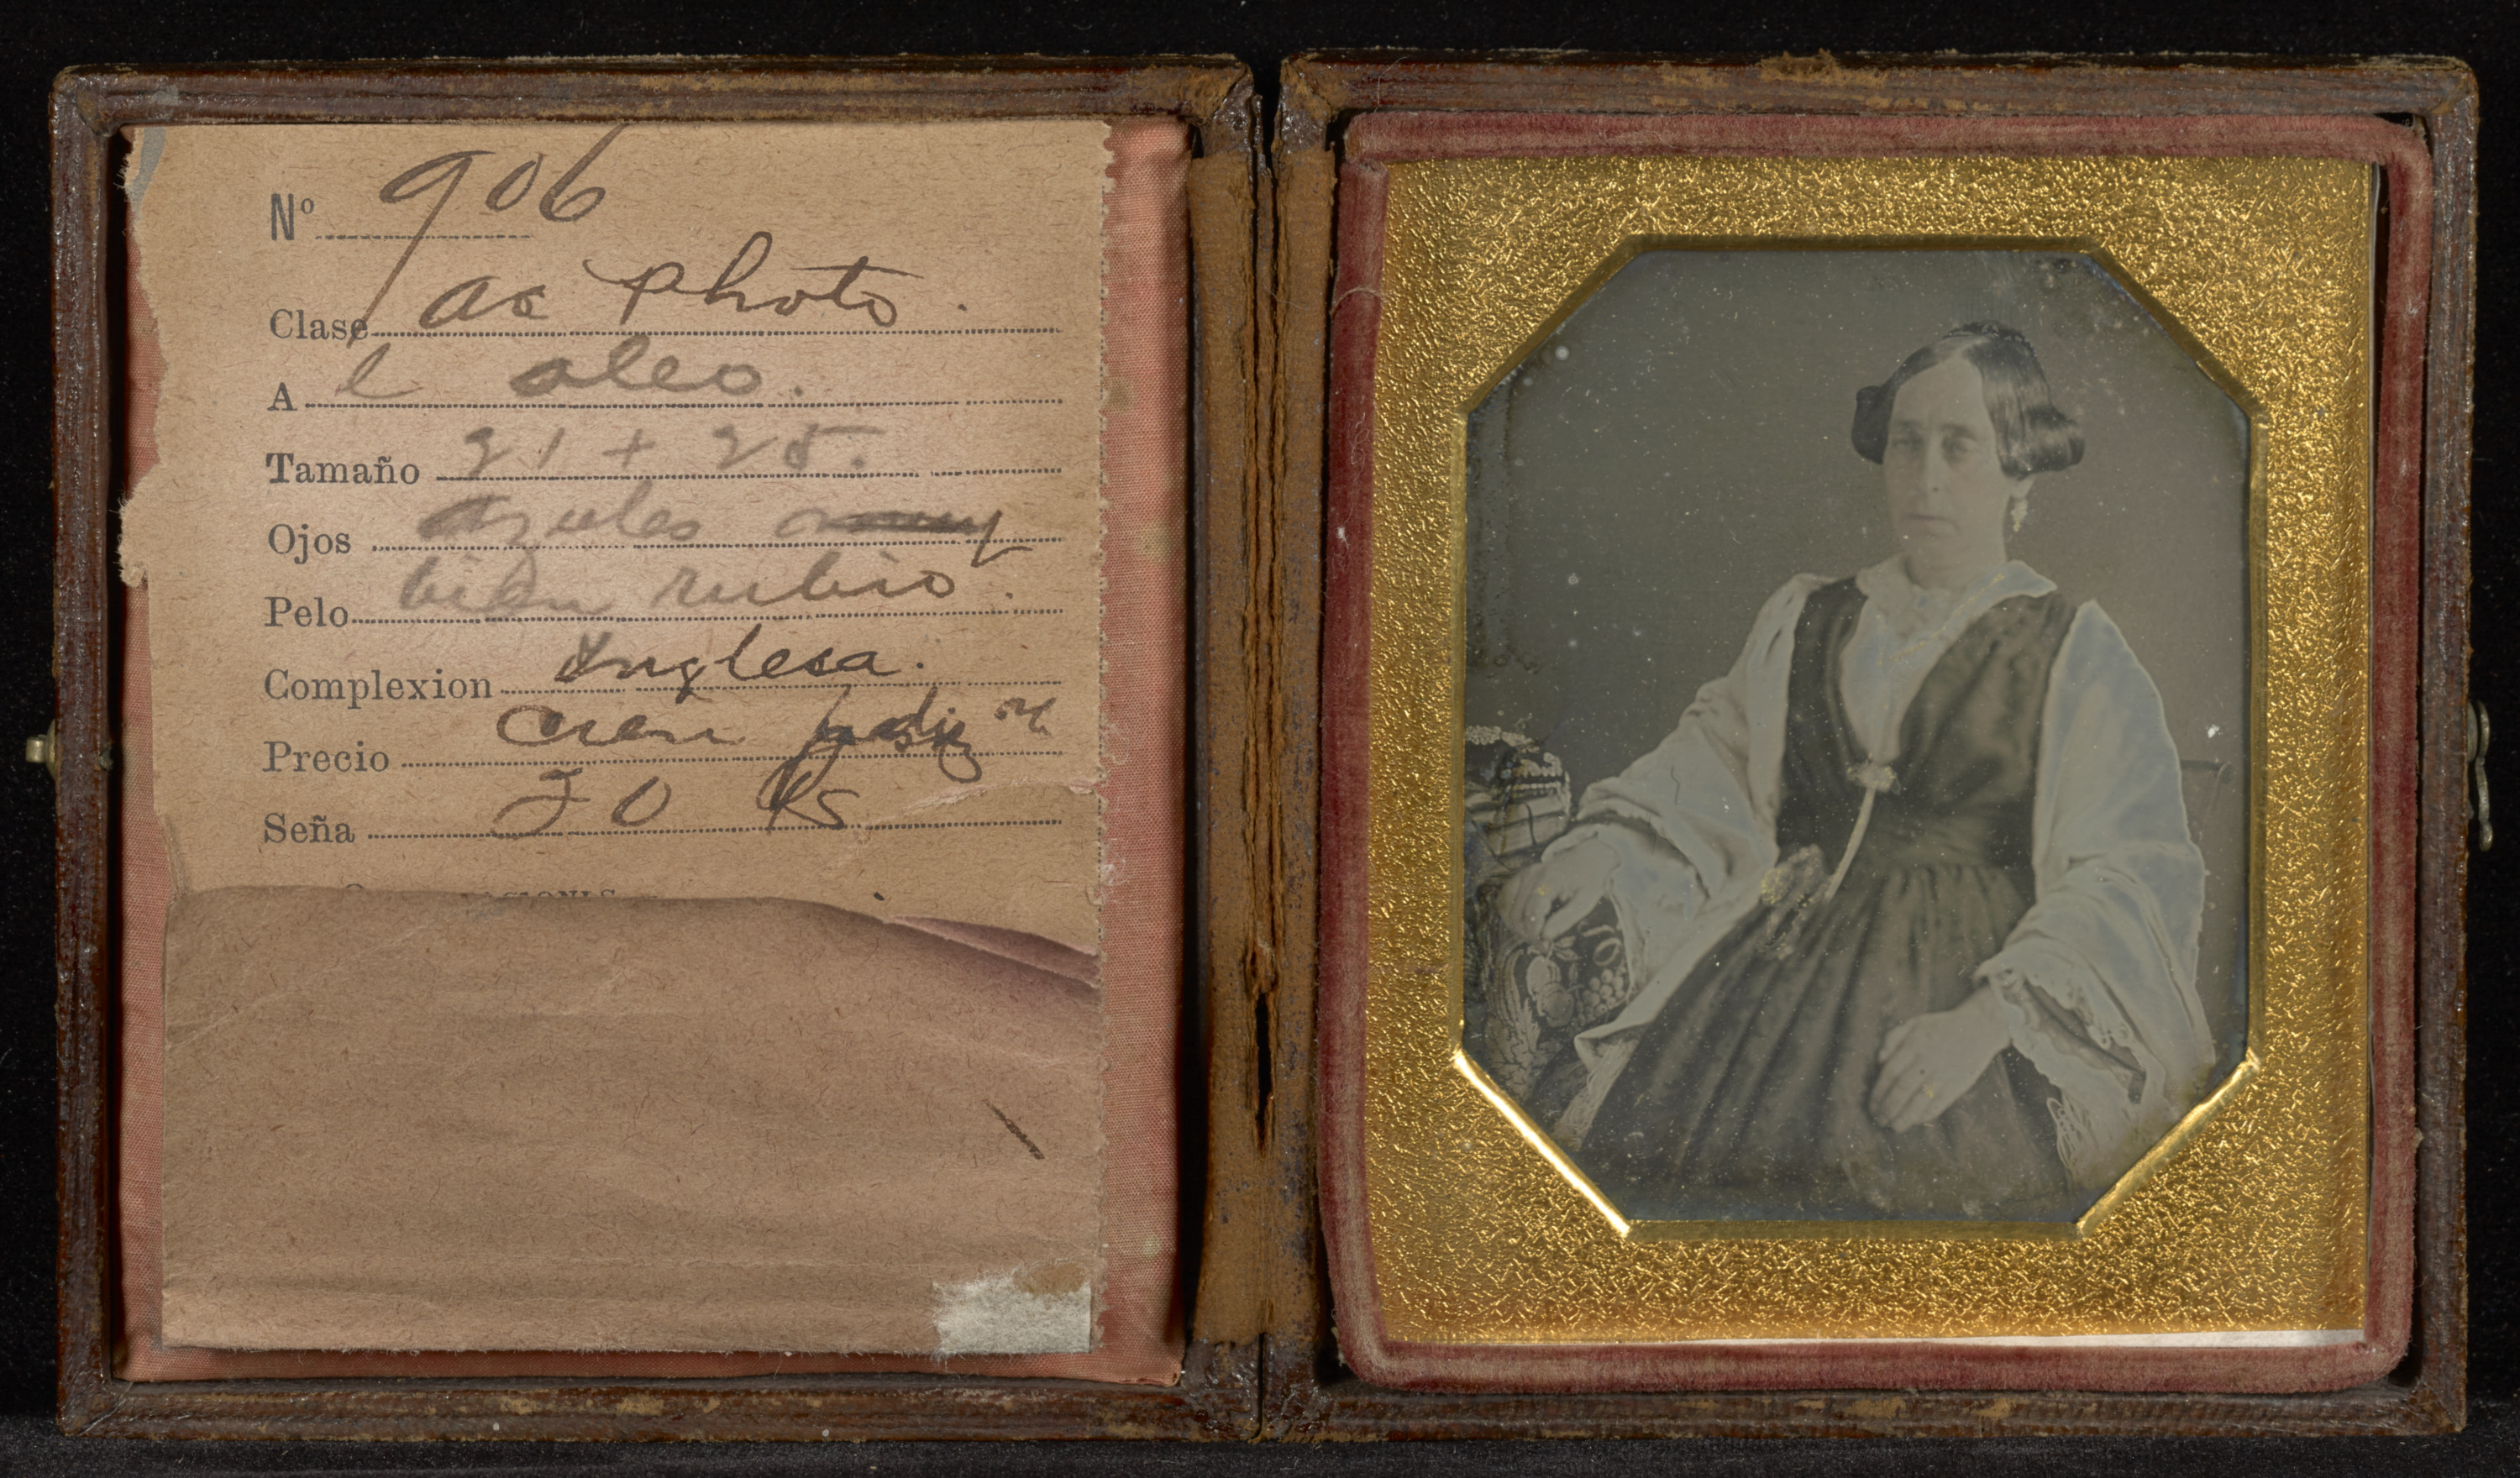 Nº 906
Clase ac photo.
A l oleo.
Tamaño 21 + 25.
Ojos azules
Pelo bien rubio.
Complexion Inglesa.
Precio
Seña 20